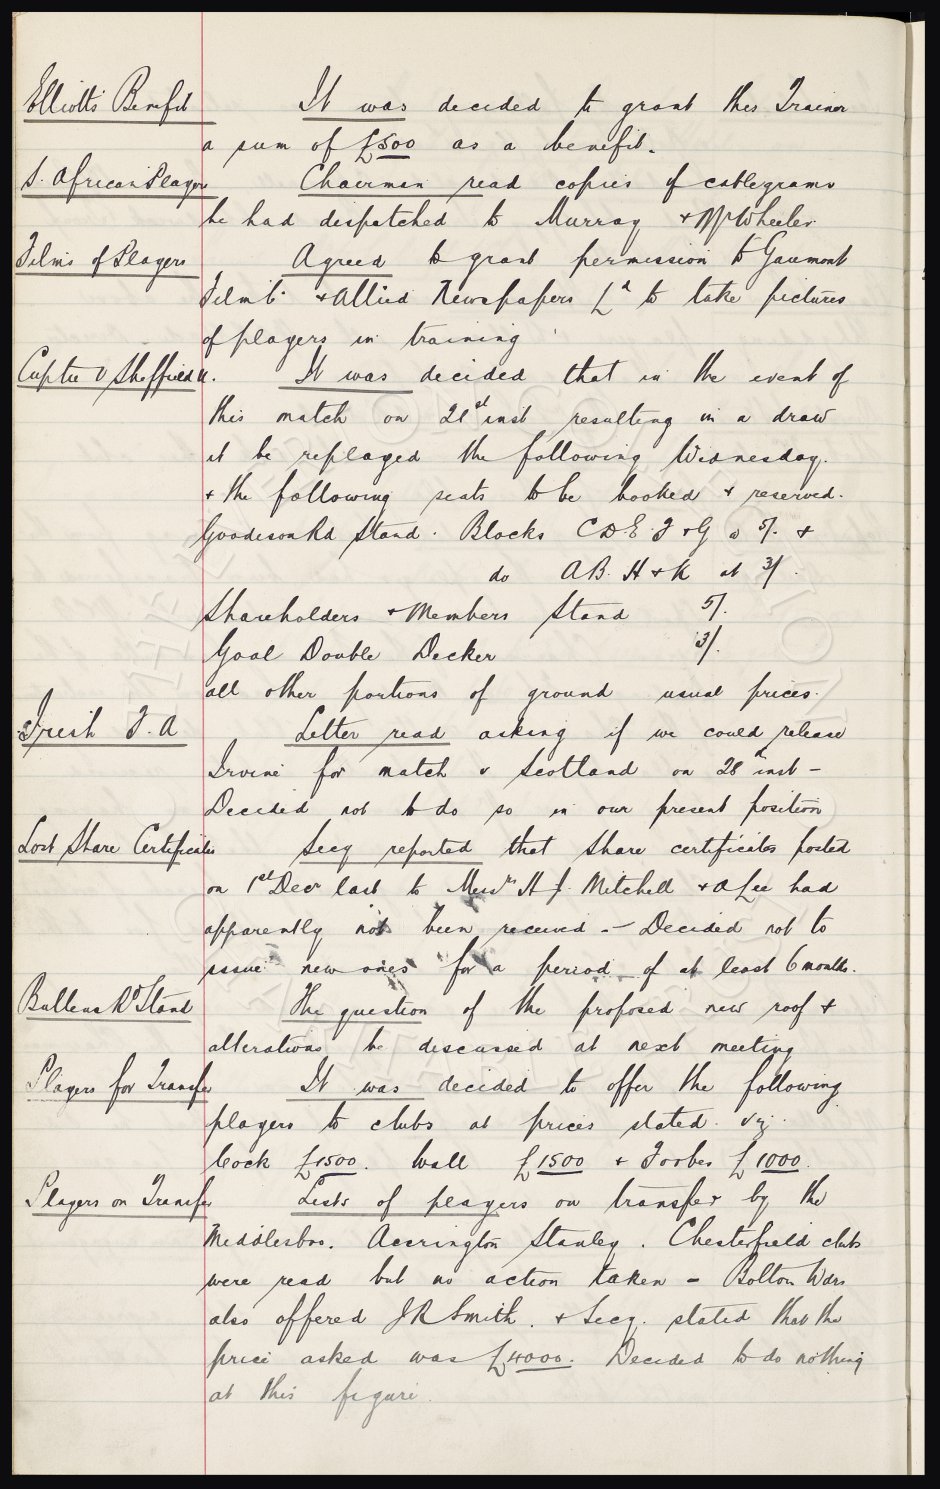 Elliotts Benefit It was decided to grant this Trainer
a sum of £500 as a benefit.
S. African Players Chairman read copies of cablegrams
he had dispatched to Murray + Mr Wheeler
Films of Players Agreed to grant permission to Gaumont
Film Co. + Allied Newspapers Ld to take pictures
of players in training
Cuptie v Sheffield U. It was decided that in the event of
this match on 21st inst resulting in a draw
it be replayed the following Wednesday.
+ the following seats to be booked + reserved.
Goodison Rd Stand. Blocks C D E F + G @ 5/. +
do A B. H + K at 3/.
Shareholders + Members Stand 5/.
Goal Double Decker 3/.
all other portions of ground usual prices.
Irish F.A Letter read asking if we could release
Irvine for match v Scotland on 28th inst –
Decided not to do so in our present position
Lost Share Certificates Secy reported that Share certificates posted
on 1st Decr last to Messrs H J. Mitchell + A Lee had
apparently not been received. – Decided not to
issue new ones for a period of at least 6 months.
Bullens Rd Stand The question of the proposed new roof +
alterations be discussed at next meeting
Players for Transfer It was decided to offer the following
players to clubs at prices stated. viz.
Cock £1500. Wall £1500 + Forbes £1000.
Players on Transfer Lists of players on transfer by the
Middlesbro. Accrington Stanley. Chesterfield clubs
were read but no action taken – Bolton Wdrs
also offered J R Smith. + Secy. stated that the
price asked was £4000. Decided to do nothing
at this figure.